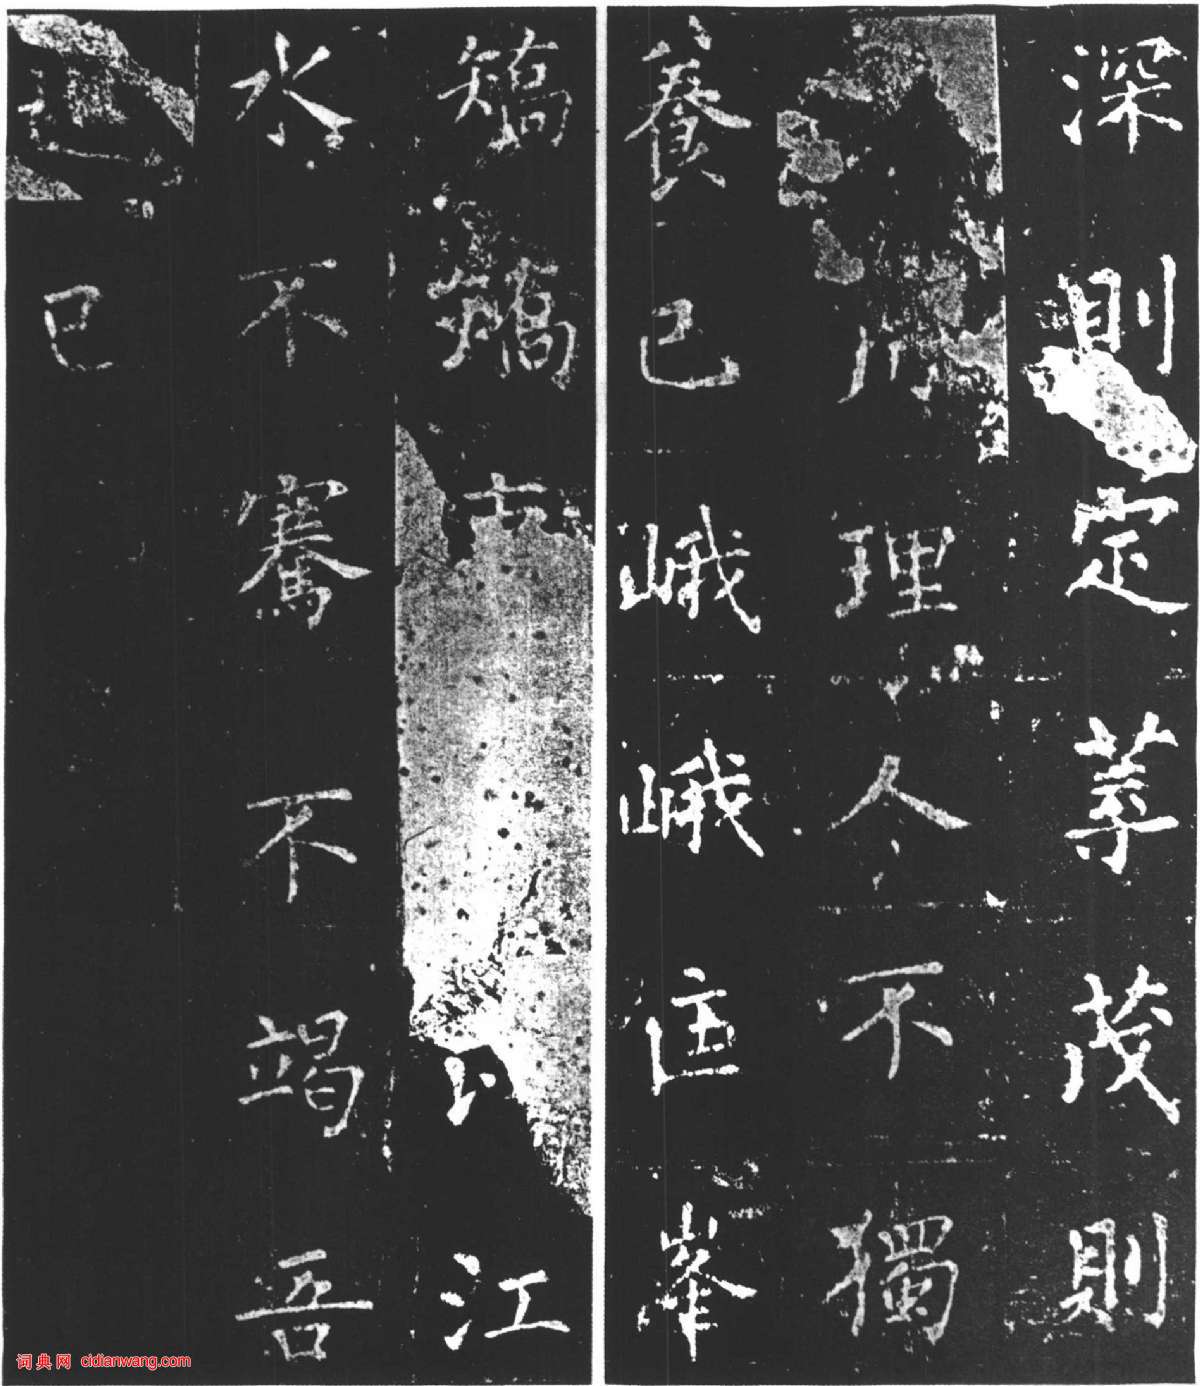 深則定茂則
理不獨
養己峨峨匡峯
矯矯江
水不騫不竭吾
已
词典网 cidianwang.com